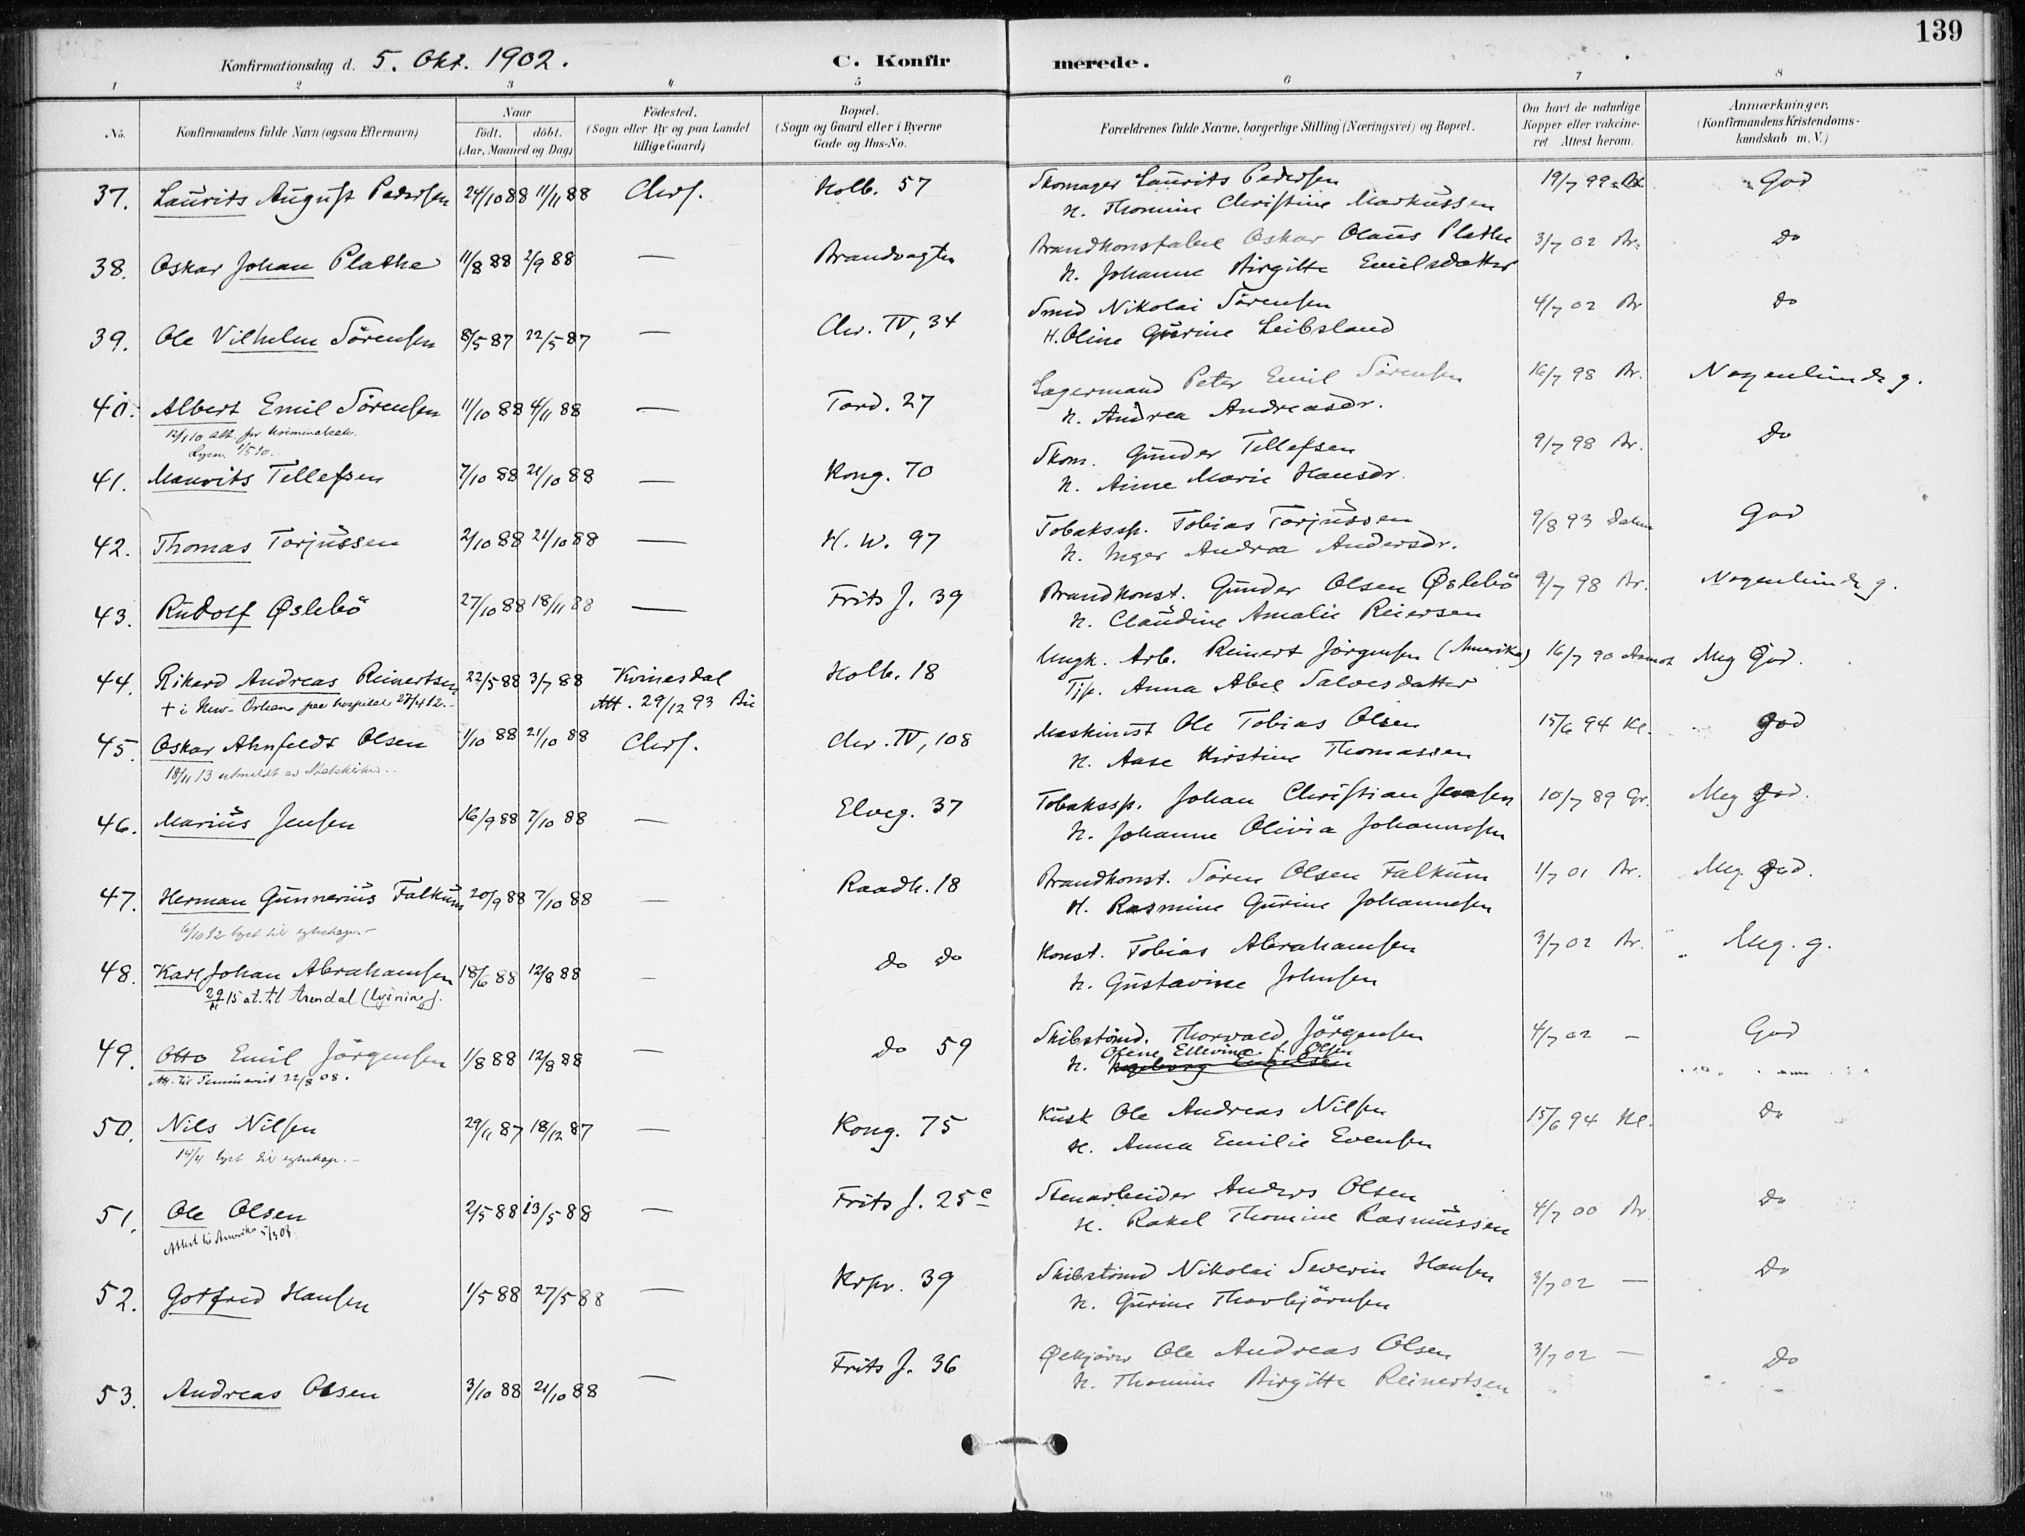 139
Konfirmationsdag d. 5. Okt. 1902. C. Konfirmerede.
1 2 3 4 5 6 7 8
No. Konfirmandens fulde Navn (ogsaa Efternavn) Naar födt. döbt. (Aar, Maaned og Dag) Födested. (Sogn eller By og paa Landet tillige Gaard) Bopæl. (Sogn og Gaard eller i Byerne Gade og Hus-No. Forældrenes fulde Navne, borgerlige Stilling (Næringsvei) og Bopæl. Om havt de naturlige Kopper eller vakcineret. Attest herom. Anmærkninger. (Konfirmandens Kristendomskundskab m. V.)
37. Laurits August Pedersen 24/10 88 11/11 88 Chrs. Holb. 57 Skomager Laurits Pedersen 19/7 99 God
H. Thomine Christine Markussen
38. Oskar Johan Plathe 11/8 88 2/9 88 — Brandvagten Brandkonstabel Oskar Olaus Plathe 3/7 02 Br. Do
H. Johanne Birgitte Emilsdatter
39. Ole Vilhelm Sörensen 8/5 87 22/5 87 — Chr. IV, 34 Smed Nikolai Sörensen 4/7 02 Br. Do
H. Oline Gurine Leibsland
40. Albert Emil Sörensen 11/10 88 4/11 88 — Tord. 27 Lagermand Peter Emil Sörensen 16/7 98 Br. Nogenlunde g.
H. Andrea Andreasdr.
12/1 10 att. for
41. Maurits Tellefsen 7/10 88 21/10 88 — Kong. 70 Skom. Gunder Tellefsen 9/7 98 Br. Do
H. Anne Marie Hansdr.
42. Thomas Torjussen 2/10 88 21/10 88 — H. W. 97 Tobakssp. Tobias Torjussen 9/8 93 God
H. Inger Andrea Andersdr.
43. Rudolf Øslebö 27/10 88 18/11 88 — Frits J. 39 Brandkonst. Gunder Olsen Øslebö 9/7 98 Br. Nogenlunde g.
H. Claudine Amalie Reiersen
44. Rikard Andreas Reinertsen 22/5 88 3/7 88 Kvinesdal Holb. 18 Ungk. Arb. Reinert Jörgensen (Amerika) 16/7 90 Meg God.
+ i New-Orleans paa hospital Att. 29/12 93 Tip. Anna Abel Salvesdatter
45. Oskar Ahnfeldt Olsen 1/10 88 21/10 88 Chrs. Chr. IV, 108 Maskinist Ole Tobias Olsen 15/6 94 Kl. God
18/11 13 utmeldt av Statskirken. H. Aase Kirstine Thomassen
46. Marius Jensen 16/9 88 7/10 88 — Elveg. 37 Tobakssp. Johan Christian Jensen 10/7 89 Gr. Meg God.
H. Johanne Olivia Johannesen
47. Herman Gunnerius Falkum 20/9 88 7/10 88 — Raadh. 18 Brandkonst. Sören Olsen Falkum 1/7 01 Br. Meg. God.
6/10 12 lyst til egteskap.- H. Rasmine Gurine Johannesen
48. Karl Johan Abrahamsen 18/6 88 12/8 88 — Do Do Konst. Tobias Abrahamsen 3/7 02 Br. Meg. g.
15 at. til Arendal (lysning). H. Gustavine Johnsen
49. Otto Emil Jörgensen 1/8 88 12/8 88 — Do 59 Skibstömd. Thorvald Jörgensen 4/7 02 — God
Att. til Seminariet 22/8 08. H. Olene Ellevine f. Olsen
50. Nils Nilsen 29/11 87 18/12 87 — Kong. 75 Kusk Ole Andreas Nilsen 15/6 94 Kl. Do
14/4 lyst til egteskap.- H. Anna Emilie Evensen
51. Ole Olsen 2/5 88 13/5 88 — Frits J. 25 c Stenarbeider Anders Olsen 4/7 00 Br. Do
Attest til Amerika H. Rakel Thomine Rasmussen
52. Gotfred Hansen 1/5 88 27/5 88 — Krpr. 39 Skibstömd Nikolai Severin Hansen 3/7 02 — Do
H. Gurine Thorbjörnsen
53. Andreas Olsen 3/10 88 21/10 88 — Frits J. 36 Ølkjörer Ole Andreas Olsen 3/7 02 — Do
H. Thomine Birgitte Reinertsen